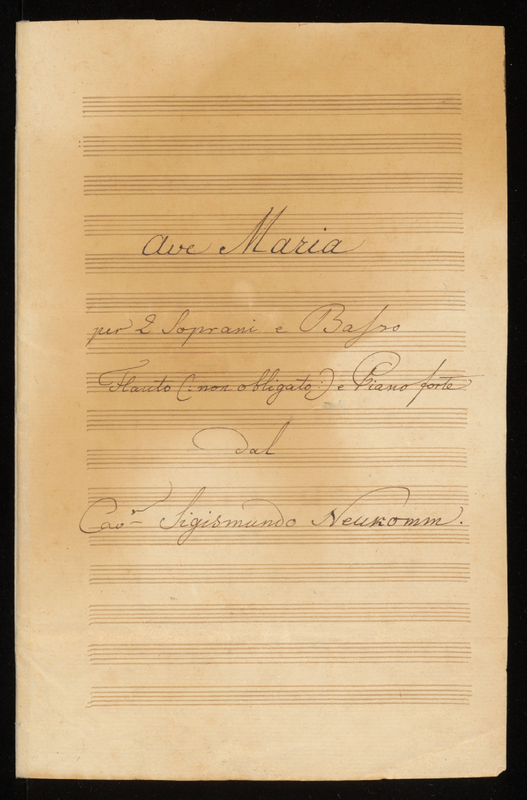 Ave Maria
per 2 Soprani e Baſso
Flauto (: non obligato :) e Piano forte
dal
Cavr Sigismundo Neukomm.